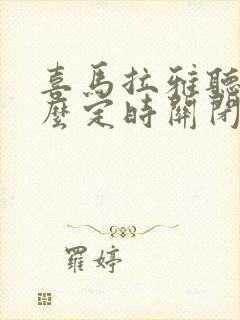 喜馬拉雅聽
麼定時關閉
羅婷